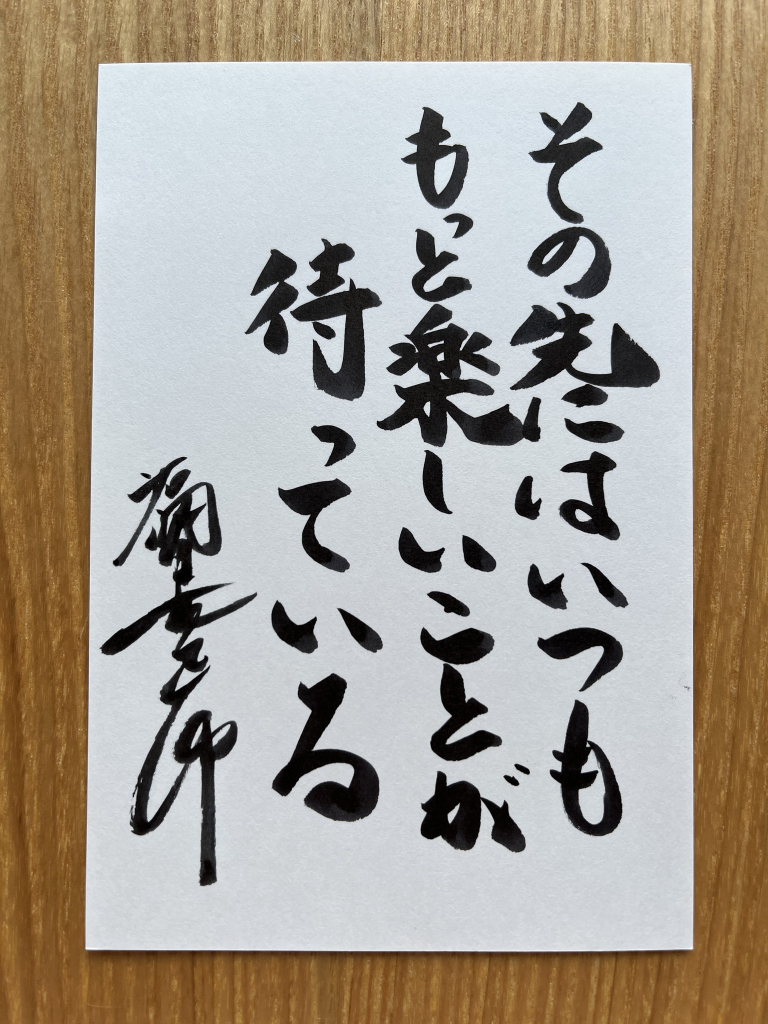 その先にはいつも
もっと楽しいことが
待っている